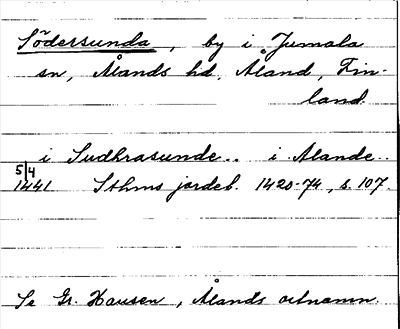 Södersunda, by i Jumala
sn, Ålands hd, Åland, Fin-
land.
i Sudhrasunde.. i Alande..
5/4
1441 Sthms jordeb. 1420-74, s. 107.
Se Gr. Hausen, Ålands ortnamn.